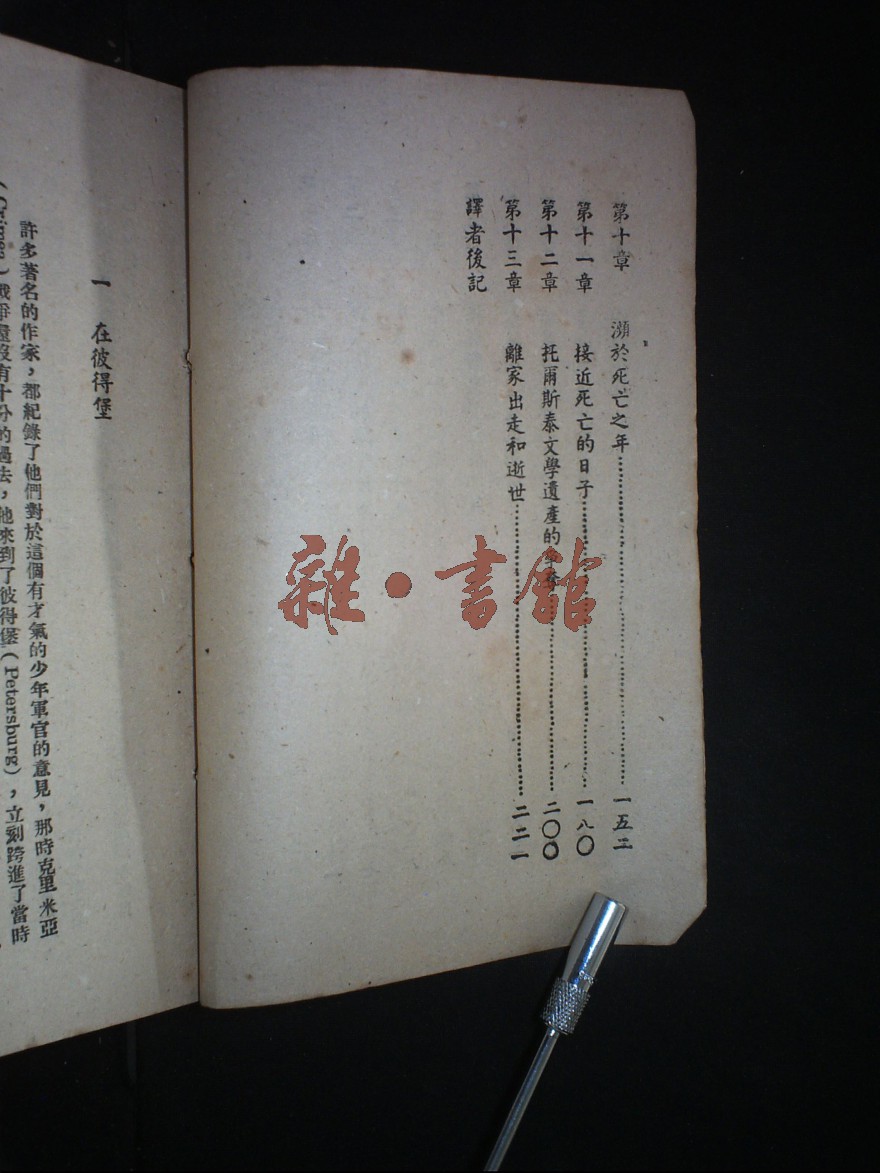 第十章 瀕於死亡之年……一五二
第十一章 接近死亡的日子……一八〇
第十二章 托爾斯泰文學遺產的……二〇〇
第十三章 離家出走和逝世……二二一
譯者後記
雜·書館
一 在彼得堡
許多著名的作家，都紀錄了他們對於這個有才氣的少年軍官的意見，那時克里米亞
(Crimea)戰爭還沒有十分的過去，他來到了彼得堡(Petersburg)，立刻跨進了當時